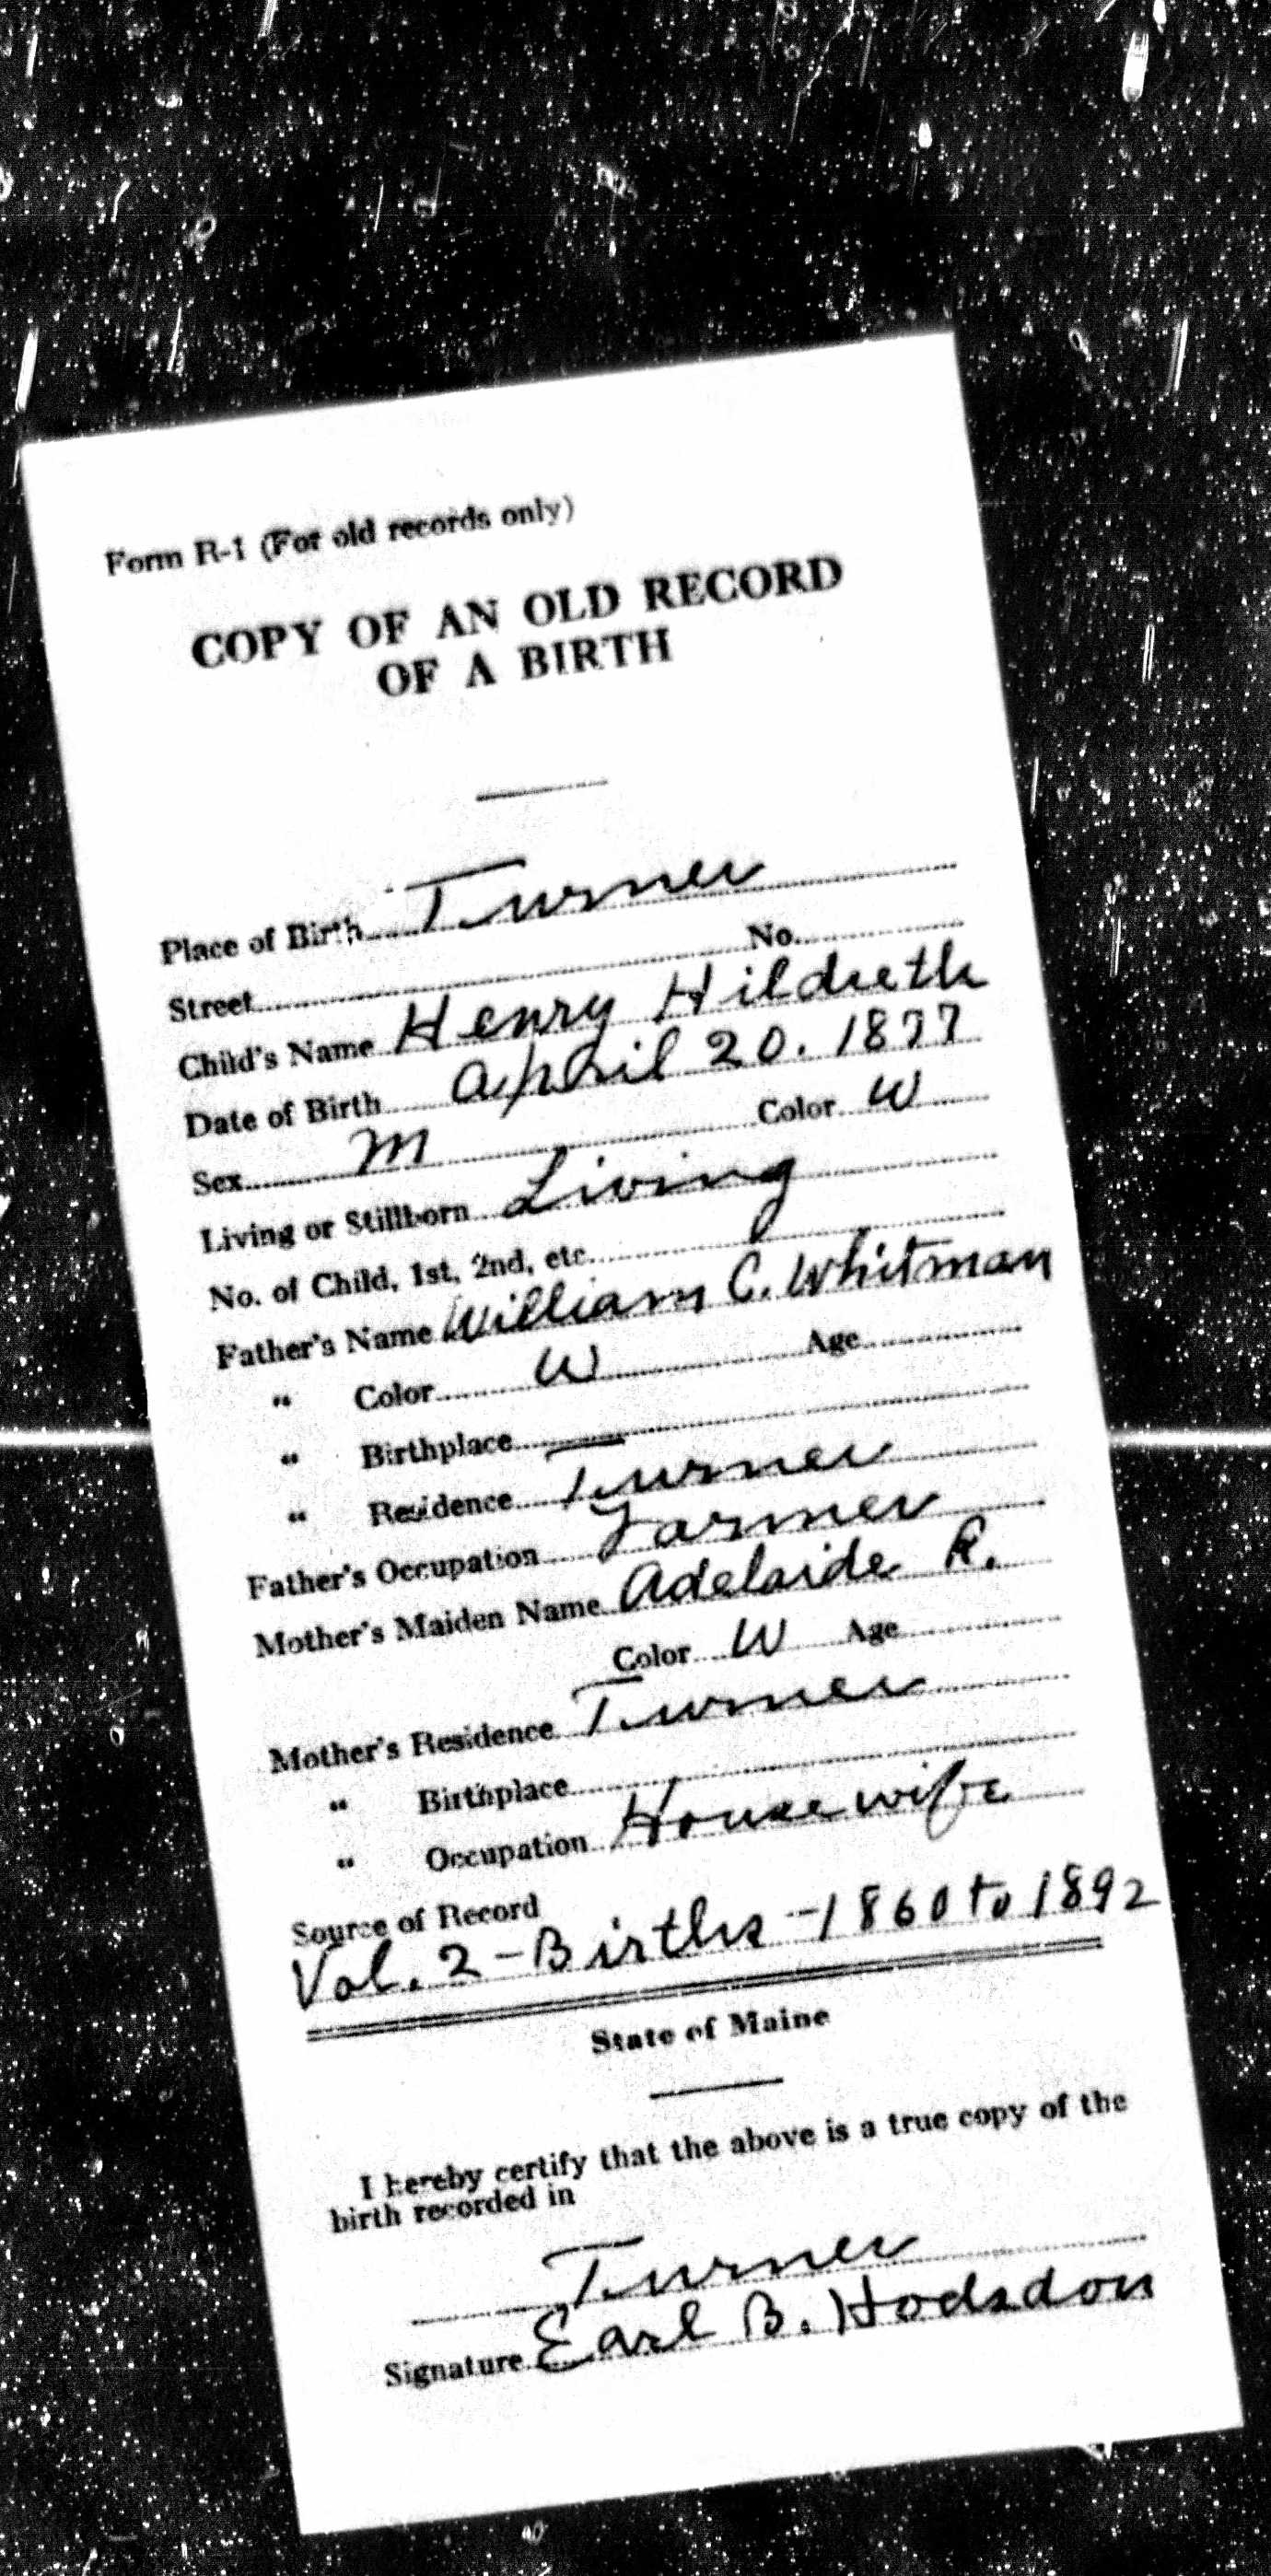 Form R-1 (For old records only)
COPY OF AN OLD RECORD
OF A BIRTH
Place of Birth Turner
Street No.
Child's Name Henry Hildreth
Date of Birth April 20. 1877
Sex M Color W
Living or Stillborn Living
No. of Child, 1st, 2nd, etc.
Father's Name William C. Whitman
" Color W Age
" Birthplace —
" Residence Turner
Father's Occupation Farmer
Mother's Maiden Name Adelaide R.
Color W Age
Mother's Residence Turner
" Birthplace
" Occupation Housewife
Source of Record
Vol. 2 - Births - 1860 to 1892
State of Maine
I hereby certify that the above is a true copy of the
birth recorded in
Turner
Signature Earl B. Hodsdon